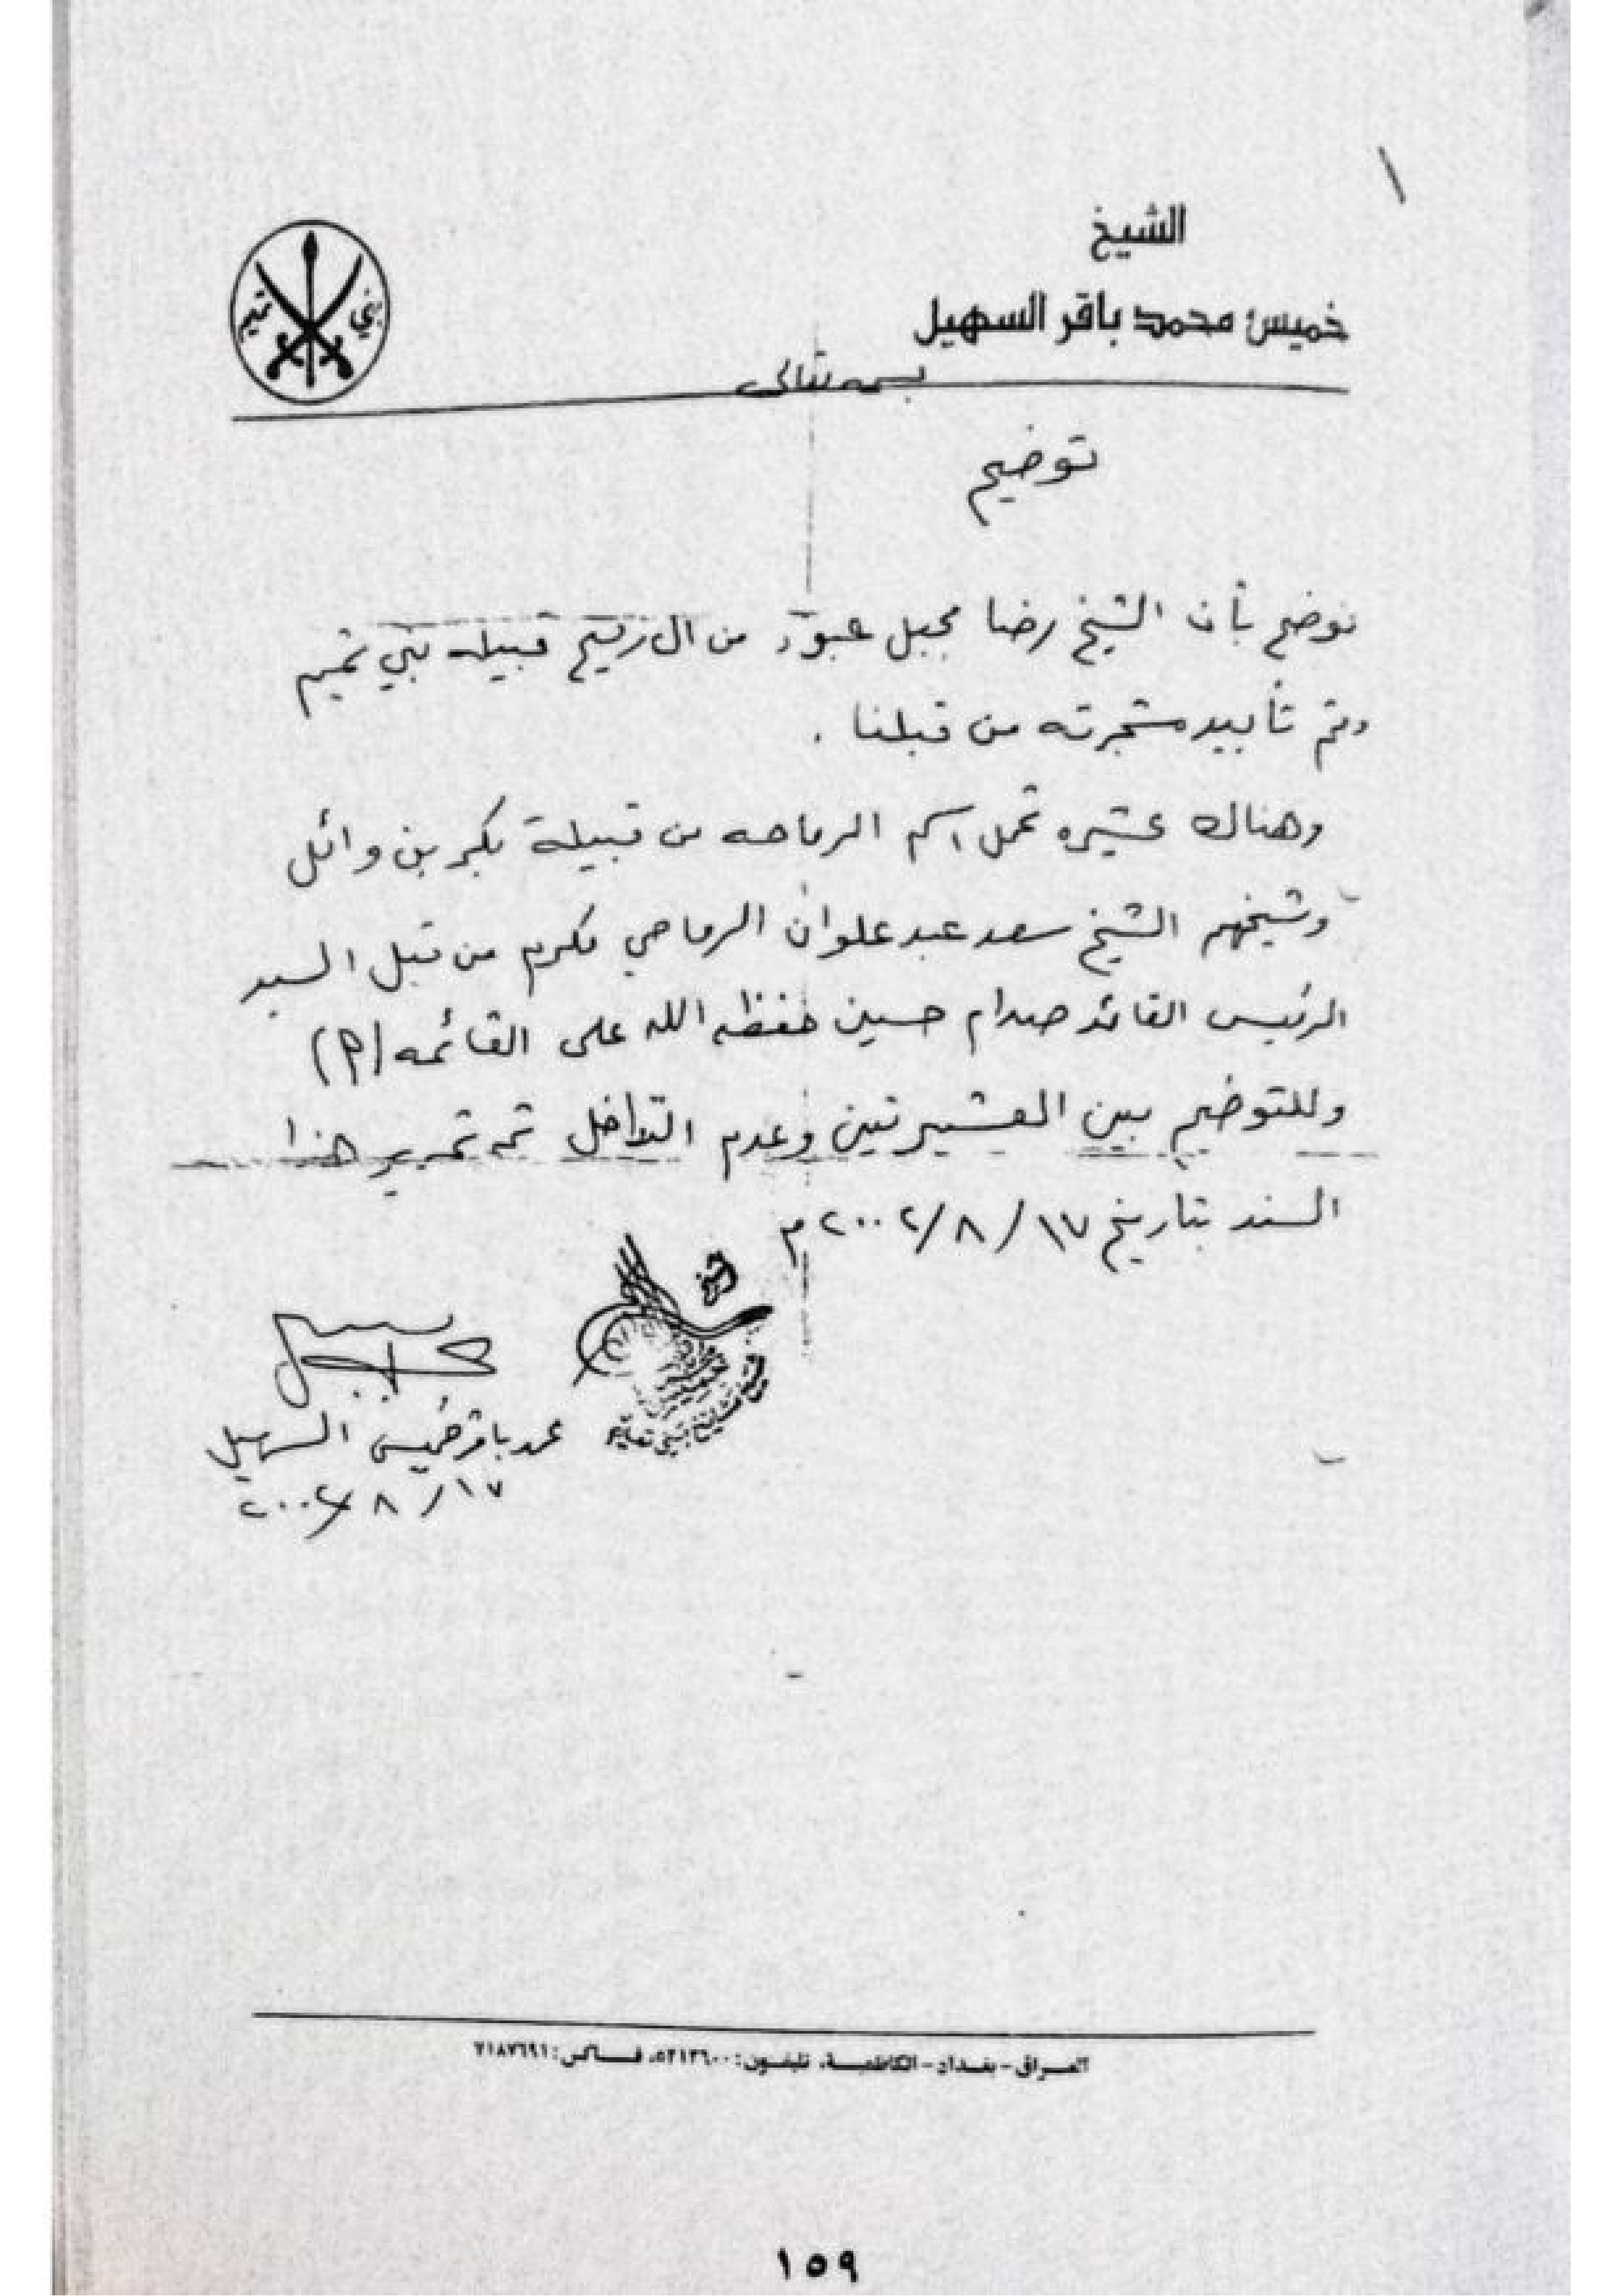 ١
الشيخ
خميس محمد باقر السهيل
بني تميم
بسمه تعالى
توضيح
نوضح بأن الشيخ رضا مجبل عبود من ال رميح قبيله بني تميم
وتم تأييد مشجرته من قبلنا .
وهناك عشيره تحمل اسم الرماحه من قبيلة بكر بن وائل
وشيخهم الشيخ سعد عبد علوان الرماحي مكرم من قبل السيد
الرئيس القائد صدام حسين حفظه الله على القائمه (P)
وللتوضيح بين العشيرتين وعدم التداخل تم تحرير هذا
السند بتاريخ ١٧/ ٨ /٢٠٠٢م
محمد باقر خميس السهيل
١٧/ ٨ /٢٠٠٢
العراق - بغداد - الكاظمية، تليفون: ٥٢١٣٦٠٠، فاكس: ٧١٨٧٦٩١
١٥٩